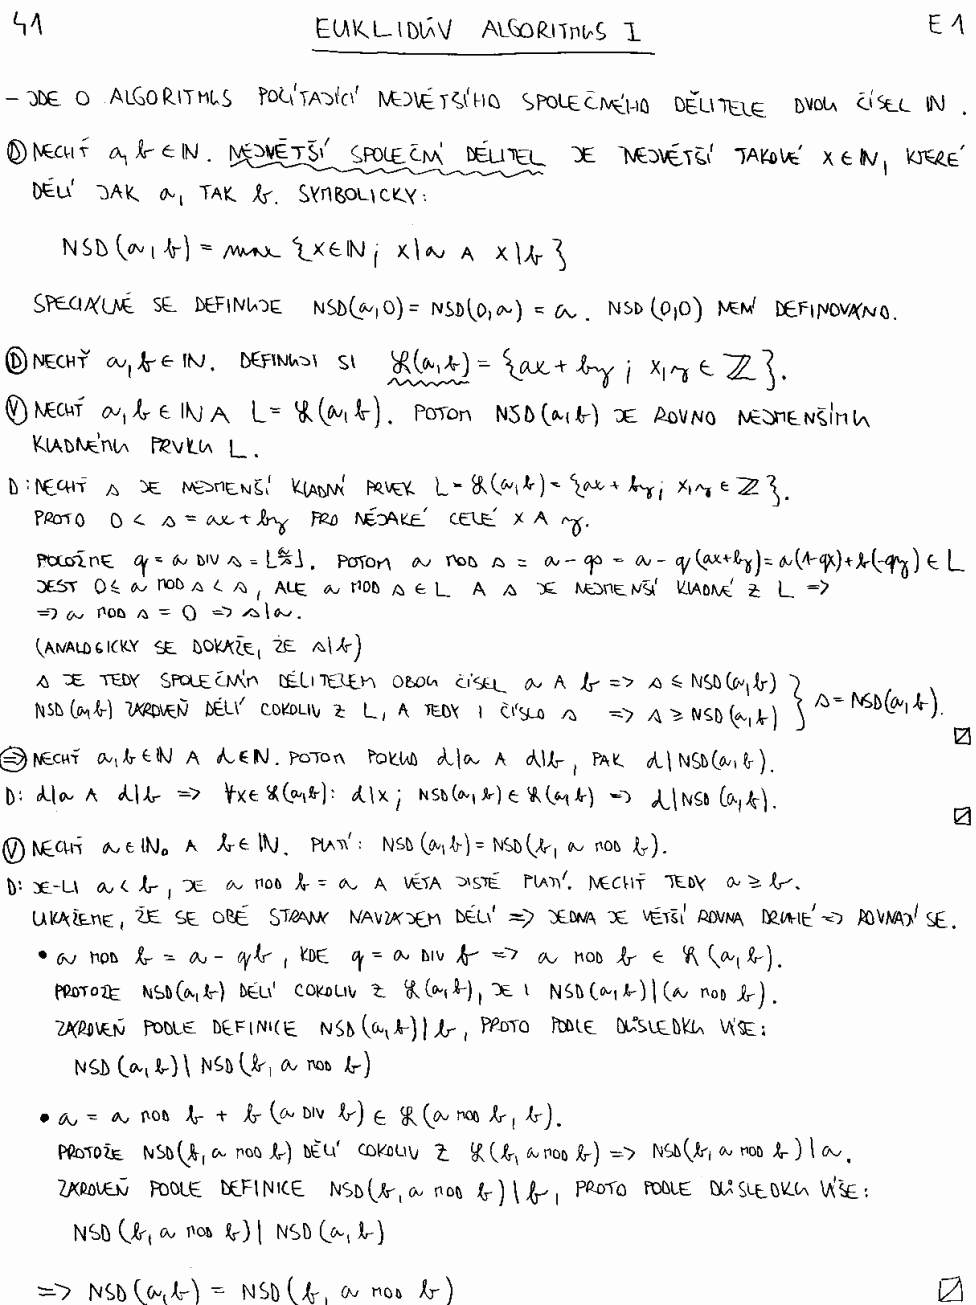 41 EUKLIDŮV ALGORITMUS I E1
- JDE O ALGORITMUS POČÍTAJÍCÍ NEJVĚTŠÍHO SPOLEČNÉHO DĚLITELE DVOU ČÍSEL ℕ.
Ⓓ NECHŤ a, b ∈ ℕ. NEJVĚTŠÍ SPOLEČNÝ DĚLITEL JE NEJVĚTŠÍ TAKOVÉ X ∈ ℕ, KTERÉ
DĚLÍ JAK a, TAK b. SYMBOLICKY:
NSD(a,b) = max {X ∈ ℕ; X|a ∧ X|b}
SPECIÁLNĚ SE DEFINUJE NSD(a,0) = NSD(0,a) = a. NSD(0,0) NENÍ DEFINOVÁNO.
Ⓓ NECHŤ a, b ∈ ℕ. DEFINUJI SI ℒ(a,b) = {ax + by; x, y ∈ ℤ}.
Ⓥ NECHŤ a, b ∈ ℕ A L = ℒ(a,b). POTOM NSD(a,b) JE ROVNO NEJMENŠÍMU
KLADNÉMU PRVKU L.
D: NECHŤ s JE NEJMENŠÍ KLADNÝ PRVEK L = ℒ(a,b) = {ax + by; x, y ∈ ℤ}.
PROTO 0 < s = ax + by PRO NĚJAKÉ CELÉ X A y.
POLOŽME q = a DIV s = ⌊a/s⌋. POTOM a MOD s = a - qs = a - q(ax+by) = a(1-qx)+b(-qy) ∈ L
JEST 0 ≤ a MOD s < s, ALE a MOD s ∈ L A s JE NEJMENŠÍ KLADNÉ Z L =>
=> a MOD s = 0 => s|a.
(ANALOGICKY SE DOKÁŽE, ŽE s|b)
s JE TEDY SPOLEČNÝM DĚLITELEM OBOU ČÍSEL a A b => s ≤ NSD(a,b)
NSD(a,b) ZÁROVEŇ DĚLÍ COKOLIV Z L, A TEDY I ČÍSLO s => s ≥ NSD(a,b) } s = NSD(a,b).
⇒ NECHŤ a, b ∈ ℕ A d ∈ ℕ. POTOM POKUD d|a A d|b, PAK d|NSD(a,b).
D: d|a A d|b => ∀x ∈ ℒ(a,b): d|x; NSD(a,b) ∈ ℒ(a,b) => d|NSD(a,b).
Ⓥ NECHŤ a ∈ ℕ₀ A b ∈ ℕ. PLATÍ: NSD(a,b) = NSD(b, a MOD b).
D: JE-LI a < b, JE a MOD b = a A VĚTA JISTĚ PLATÍ. NECHŤ TEDY a ≥ b.
UKÁŽEME, ŽE SE OBĚ STRANY NAVZÁJEM DĚLÍ => JEDNA JE VĚTŠÍ ROVNA DRUHÉ => ROVNAJÍ SE.
• a MOD b = a - qb, KDE q = a DIV b => a MOD b ∈ ℒ(a,b).
PROTOŽE NSD(a,b) DĚLÍ COKOLIV Z ℒ(a,b), JE I NSD(a,b)|(a MOD b).
ZÁROVEŇ PODLE DEFINICE NSD(a,b)|b, PROTO PODLE DŮSLEDKU VÝŠE:
NSD(a,b)|NSD(b, a MOD b)
• a = a MOD b + b(a DIV b) ∈ ℒ(a MOD b, b).
PROTOŽE NSD(b, a MOD b) DĚLÍ COKOLIV Z ℒ(b, a MOD b) => NSD(b, a MOD b)|a.
ZÁROVEŇ PODLE DEFINICE NSD(b, a MOD b)|b, PROTO PODLE DŮSLEDKU VÝŠE:
NSD(b, a MOD b)|NSD(a,b)
=> NSD(a,b) = NSD(b, a MOD b)